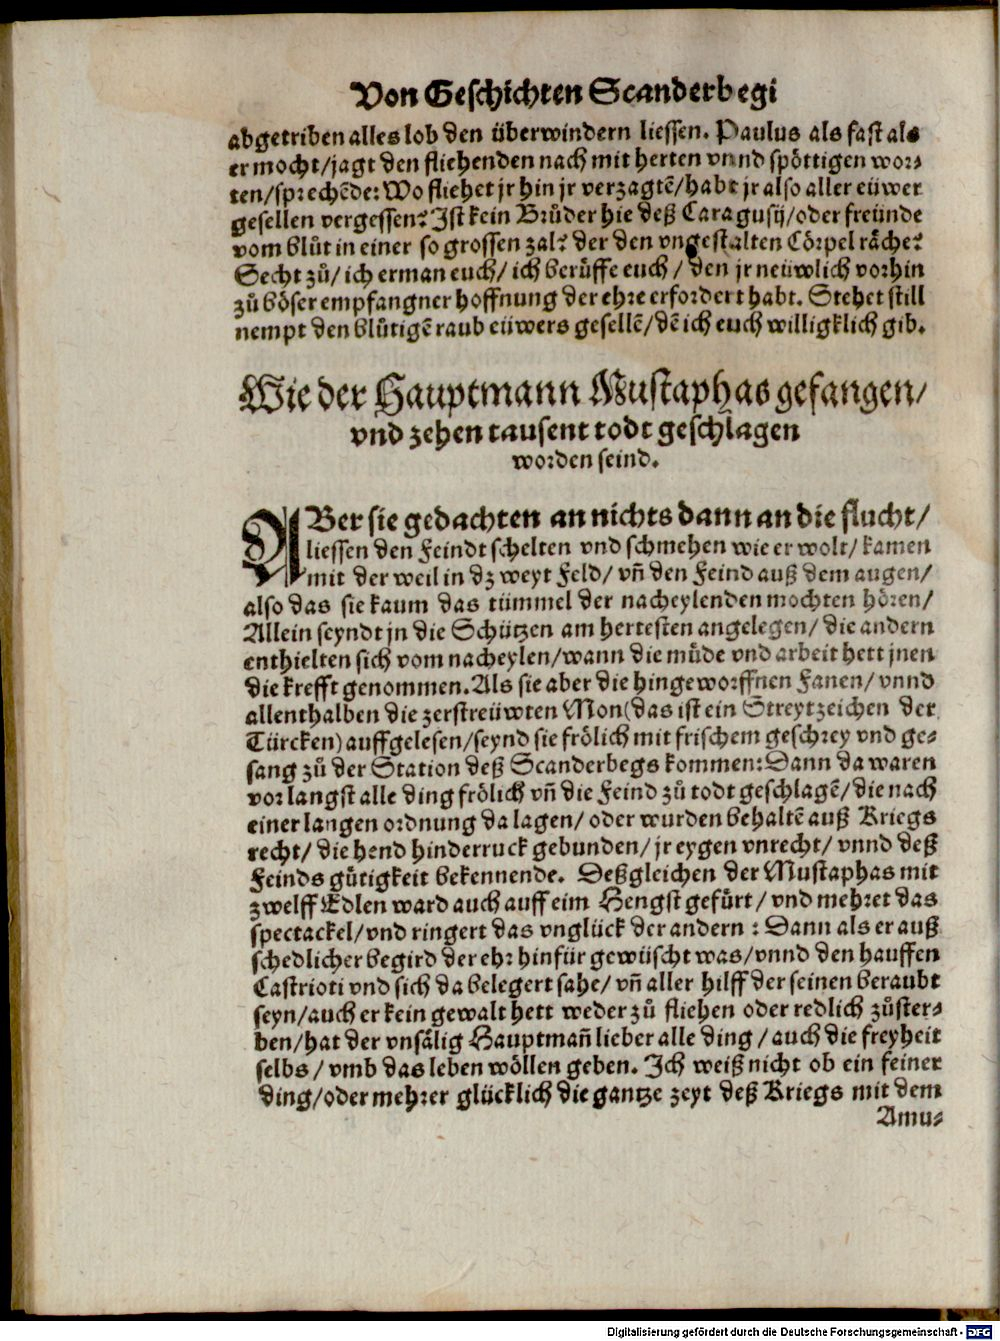 Von Geschichten Scanderbegi
abgetriben alles lob den überwindern liessen. Paulus als fast als
er mocht/jagt den fliehenden nach mit herten vnnd spöttigen wor⸗
ten/sprechēde: Wo fliehet jr hin jr verzagtē/habt jr also aller eüwer
gesellen vergessen? Ist kein Brůder hie deß Caragusij/oder freünde
vom blůt in einer so grossen zal? der den vngestalten Cörpel räche?
Secht zů/ ich erman euch/ ich berůffe euch / den jr neüwlich vorhin
zů böser empfangner hoffnung der ehre erfordert habt. Stehet still
nempt den blůtigē raub eüwers gesellē/dē ich euch willigklich gib.
Wie der Hauptmann Mustaphas gefangen/
vnd zehen tausent todt geschlagen
worden seind.
ABer sie gedachten an nichts dann an die flucht/
liessen den Feindt schelten vnd schmehen wie er wolt/ kamen
mit der weil in dz weyt Feld/ vñ den Feind auß dem augen/
also das sie kaum das tümmel der nacheylenden mochten hören/
Allein seyndt jn die Schützen am hertesten angelegen/ die andern
enthielten sich vom nacheylen/wann die můde vnd arbeit hett jnen
die krefft genommen. Als sie aber die hingeworffnen Fanen/ vnnd
allenthalben die zerstreüwten Mon(das ist ein Streytzeichen der
Türcken) auffgelesen/seynd sie frölich mit frischem geschrey vnd ge⸗
sang zů der Station deß Scanderbegs kommen: Dann da waren
vor langst alle ding frölich vñ die Feind zů todt geschlagē/die nach
einer langen ordnung da lagen/ oder wurden behaltē auß Kriegs
recht/ die hend hinderruck gebunden/ jr eygen vnrecht/ vnnd deß
Feinds gůtigkeit bekennende. Deßgleichen der Mustaphas mit
zwelff Edlen ward auch auff eim Hengst gefürt/ vnd mehret das
spectackel/vnd ringert das vnglück der andern : Dann als er auß
schedlicher begird der ehr hinfür gewüscht was/vnnd den hauffen
Castrioti vnd sich da belegert sahe/ vñ aller hilff der seinen beraubt
seyn/auch er kein gewalt hett weder zů fliehen oder redlich zůster⸗
ben/hat der vnsälig Hauptmañ lieber alle ding / auch die freyheit
selbs / vmb das leben wöllen geben. Ich weiß nicht ob ein feiner
ding/oder mehrer glücklich die gantze zeyt deß Kriegs mit dem
Amu⸗
Digitalisierung gefördert durch die Deutsche Forschungsgemeinschaft - DFG